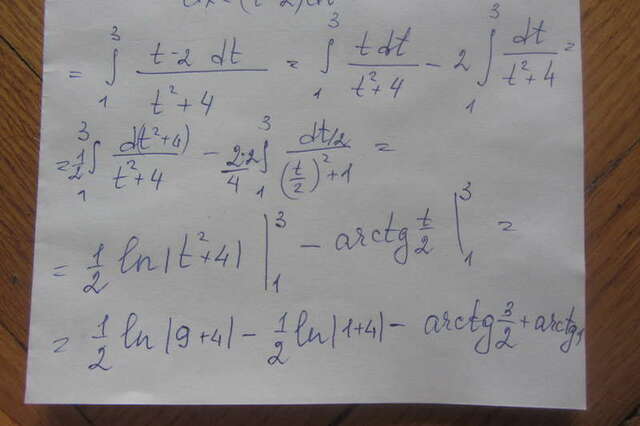 = ∫₁³ t-2 dt / t²+4 = ∫₁³ t dt / t²+4 - 2 ∫₁³ dt / t²+4 =
= 1/2 ∫₁³ d(t²+4) / t²+4 - 2·2/4 ∫₁³ dt/2 / (t/2)²+1 =
= 1/2 ln|t²+4| |₁³ - arctg t/2 |₁³ =
= 1/2 ln|9+4| - 1/2 ln|1+4| - arctg 3/2 + arctg